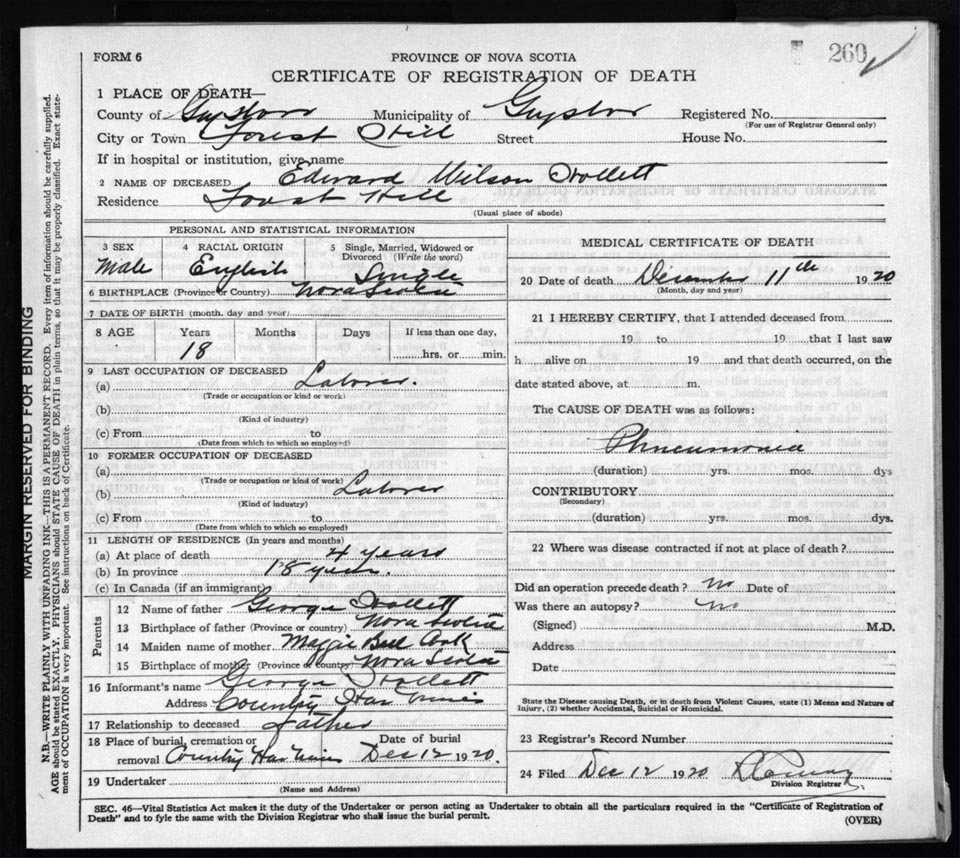 260
FORM 6
PROVINCE OF NOVA SCOTIA
CERTIFICATE OF REGISTRATION OF DEATH
1 PLACE OF DEATH—
County of Guysboro Municipality of Guysboro Registered No.
(For use of Registrar General only)
City or Town Forest Hill Street House No.
If in hospital or institution, give name
2 NAME OF DECEASED Edward Wilson Hollett
Residence Forest Hill
(Usual place of abode)
PERSONAL AND STATISTICAL INFORMATION
3 SEX 4 RACIAL ORIGIN 5 Single, Married, Widowed or Divorced (Write the word)
Male English Single
6 BIRTHPLACE (Province or Country) Nova Scotia
7 DATE OF BIRTH (month, day and year)
8 AGE Years Months Days If less than one day,
18 hrs. or min.
9 LAST OCCUPATION OF DECEASED
(a) Laborer.
(Trade or occupation or kind or work)
(b)
(Kind of industry)
(c) From to
(Date from which to which so employed)
10 FORMER OCCUPATION OF DECEASED
(a)
(Trade or occupation or kind of work)
(b) Laborer
(Kind of industry)
(c) From to
(Date from which to which so employed)
11 LENGTH OF RESIDENCE (In years and months)
(a) At place of death 4 years
(b) In province 18 years.
(c) In Canada (if an immigrant)
Parents
12 Name of father George Hollett
13 Birthplace of father (Province or country) Nova Scotia
14 Maiden name of mother Maggie Bell Cook
15 Birthplace of mother (Province or country) Nova Scotia
16 Informant's name George Hollett
Address Country Har
17 Relationship to deceased father
18 Place of burial, cremation or removal Country Har Date of burial Dec 12 1920.
19 Undertaker
(Name and Address)
MEDICAL CERTIFICATE OF DEATH
20 Date of death December 11th 1920
(Month, day and year)
21 I HEREBY CERTIFY, that I attended deceased from
19 to 19 that I last saw
h alive on 19 and that death occurred, on the
date stated above, at m.
The CAUSE OF DEATH was as follows:
Phneumonia
(duration) yrs. mos. dys
CONTRIBUTORY
(Secondary)
(duration) yrs. mos. dys.
22 Where was disease contracted if not at place of death?
Did an operation precede death? No Date of
Was there an autopsy? No
(Signed) M.D.
Address
Date
State the Disease causing Death, or in death from Violent Causes, state (1) Means and Nature of
Injury, (2) whether Accidental, Suicidal or Homicidal.
23 Registrar's Record Number
24 Filed Dec 12 1920
Division Registrar
SEC. 46—Vital Statistics Act makes it the duty of the Undertaker or person acting as Undertaker to obtain all the particulars required in the "Certificate of Registration of
Death" and to fyle the same with the Division Registrar who shall issue the burial permit.
(OVER)
MARGIN RESERVED FOR BINDING
N.B.—WRITE PLAINLY WITH UNFADING INK—THIS IS A PERMANENT RECORD. Every item of information should be carefully supplied.
AGE should be stated EXACTLY. PHYSICIANS should STATE CAUSE OF DEATH in plain terms, so that it may be properly classified. Exact state-
ment of OCCUPATION is very important. See instructions on back of Certificate.